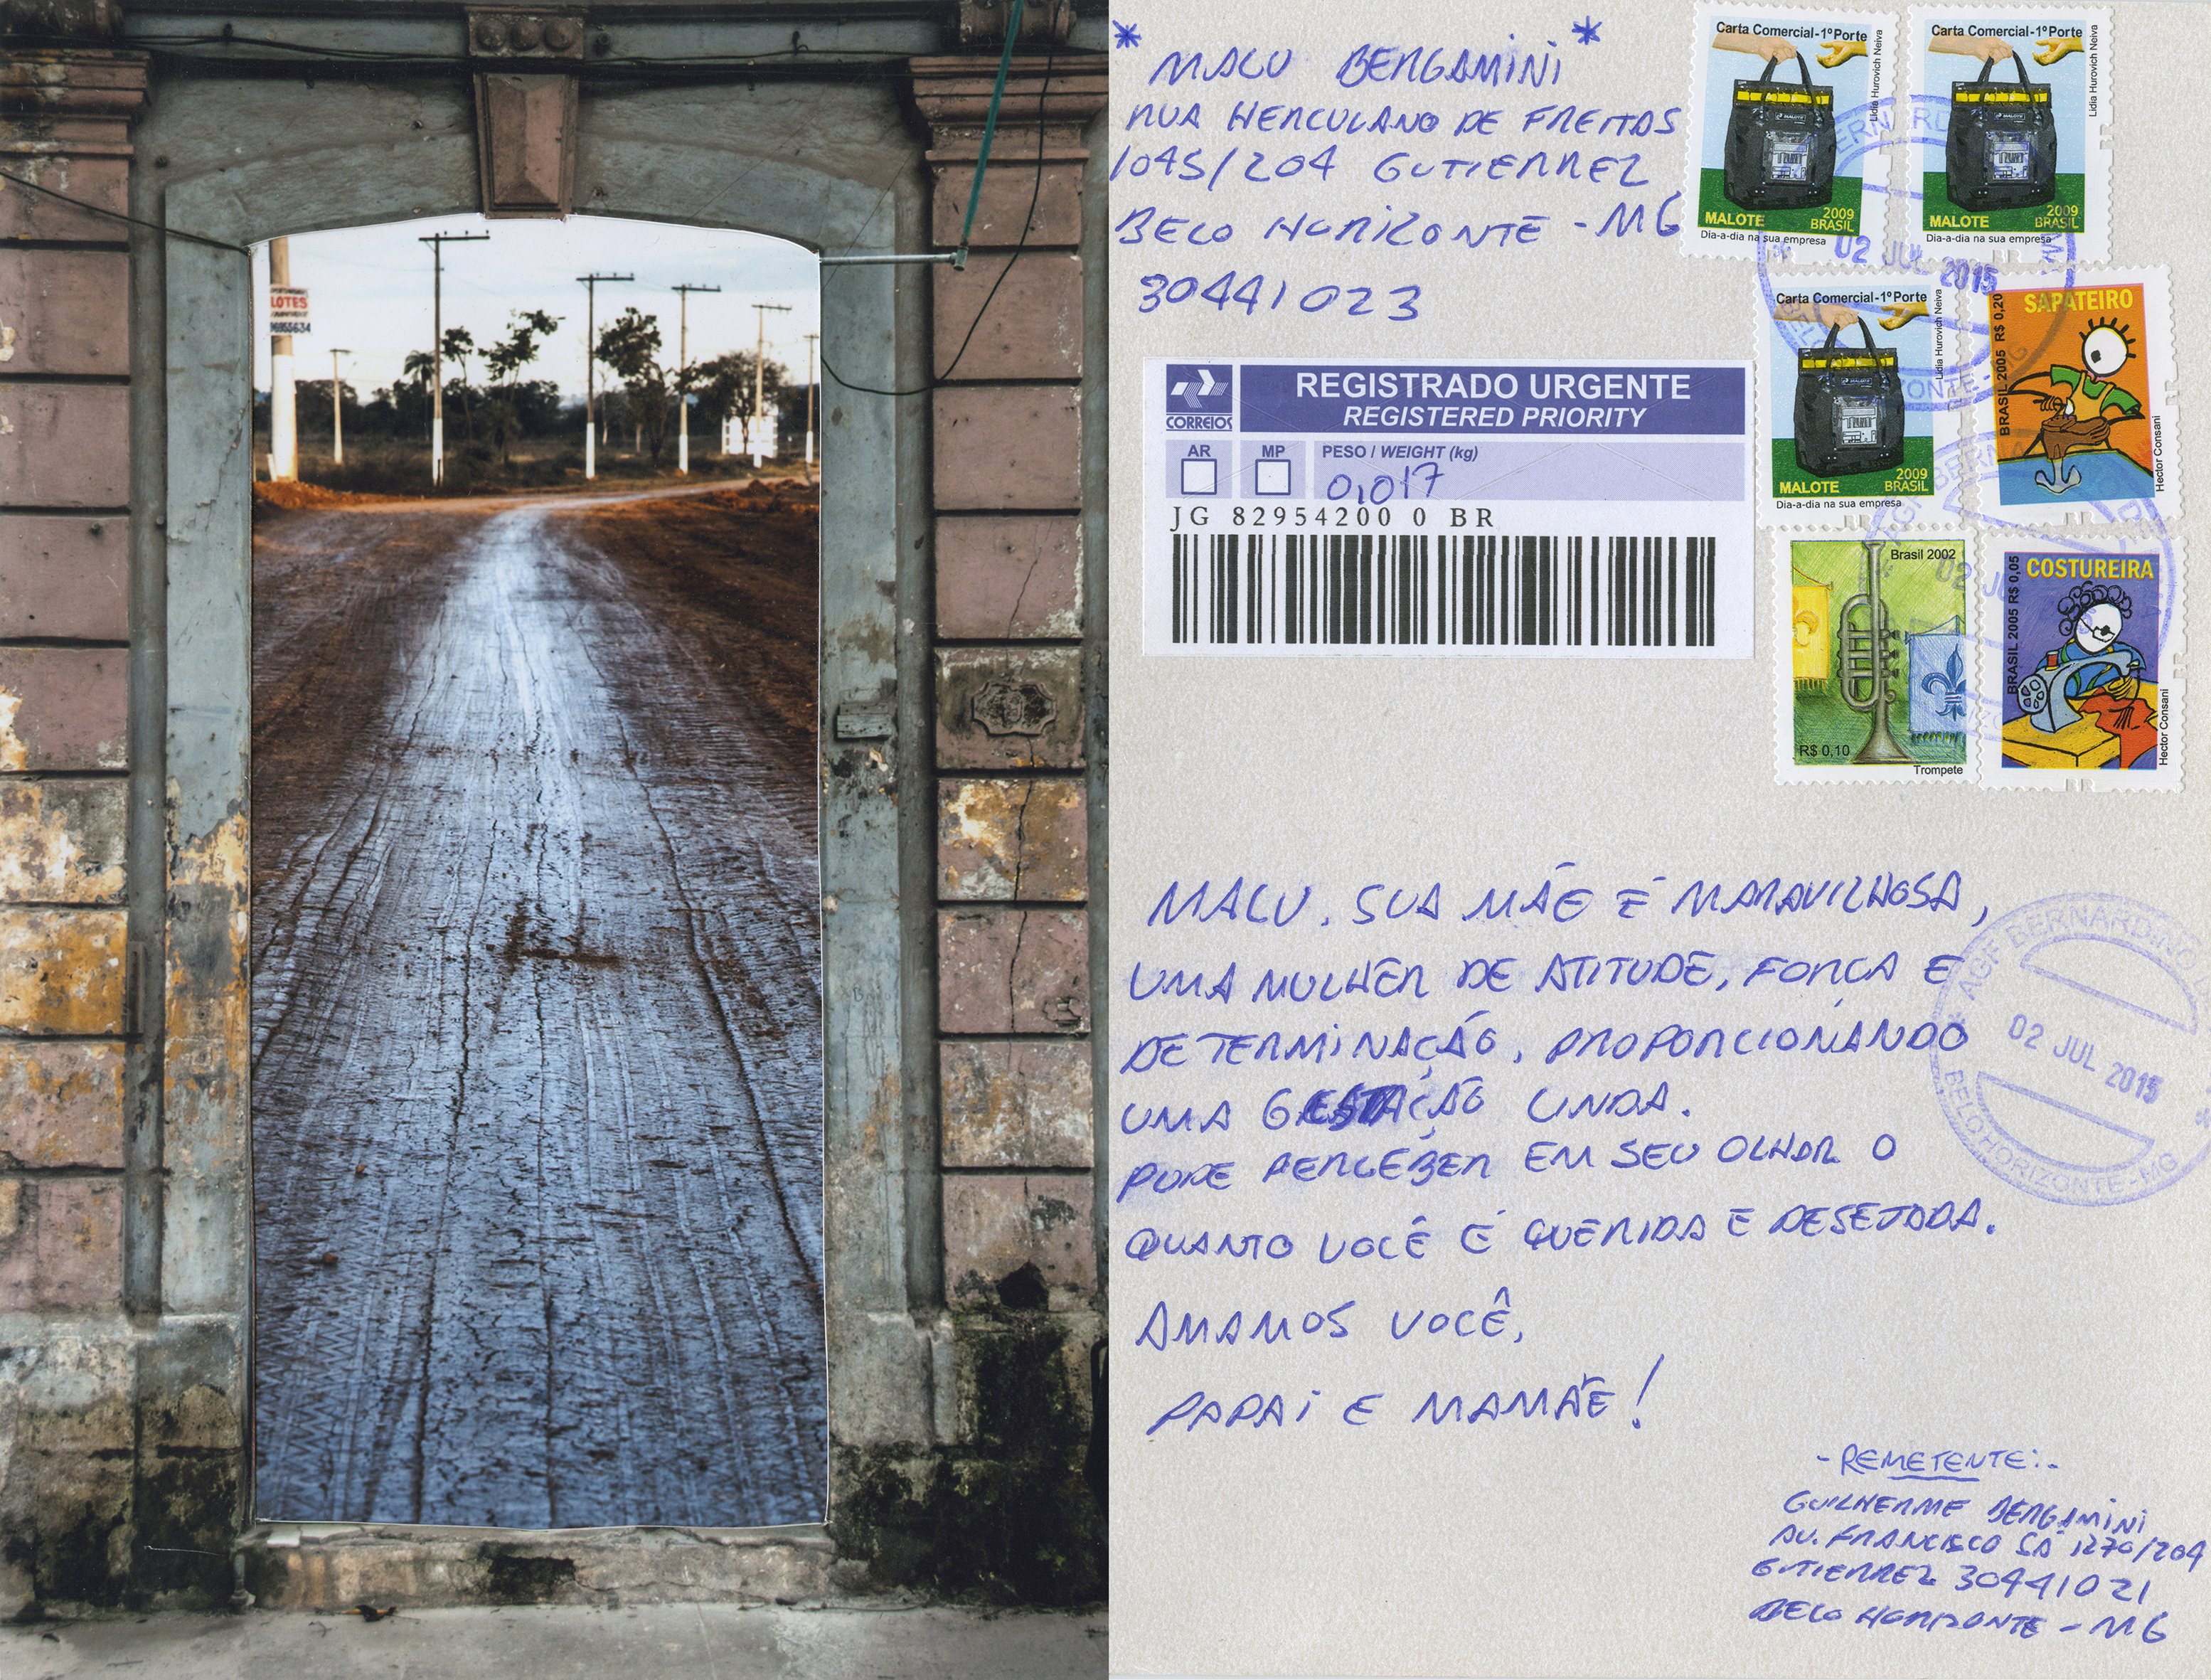 LOTES
96955634
* MALU BERGAMINI *
RUA HERCULANO DE FREITAS
1045/204 GUTIERREZ
BELO HORIZONTE - MG
30441023
Carta Comercial-1º Porte
Lidia Hurovich Neiva
MALOTE
MALOTE
2009
BRASIL
Dia-a-dia na sua empresa
Carta Comercial-1º Porte
Lidia Hurovich Neiva
MALOTE
MALOTE
2009
BRASIL
Dia-a-dia na sua empresa
02 JUL 2015
Carta Comercial-1º Porte
Lidia Hurovich Neiva
MALOTE
MALOTE
2009
BRASIL
Dia-a-dia na sua empresa
SAPATEIRO
BRASIL 2005 R$ 0,20
Hector Consani
Brasil 2002
R$ 0,10
Trompete
COSTUREIRA
BRASIL 2005 R$ 0,05
Hector Consani
CORREIOS
REGISTRADO URGENTE
REGISTERED PRIORITY
AR
MP
PESO / WEIGHT (kg)
0,017
JG 82954200 0 BR
MALU, SUA MÃE É MARAVILHOSA,
UMA MULHER DE ATITUDE, FORÇA E
DETERMINAÇÃO, PROPORCIONANDO
UMA GESTAÇÃO LINDA.
PUDE PERCEBER EM SEU OLHAR O
QUANTO VOCÊ É QUERIDA E DESEJADA.
AMAMOS VOCÊ,
PAPAI E MAMÃE!
AGF BERNARDINO
02 JUL 2015
BELO HORIZONTE - MG
- REMETENTE: -
GUILHERME BERGAMINI
AV. FRANCISCO SÁ 1270/204
GUTIERREZ 30441021
BELO HORIZONTE - MG